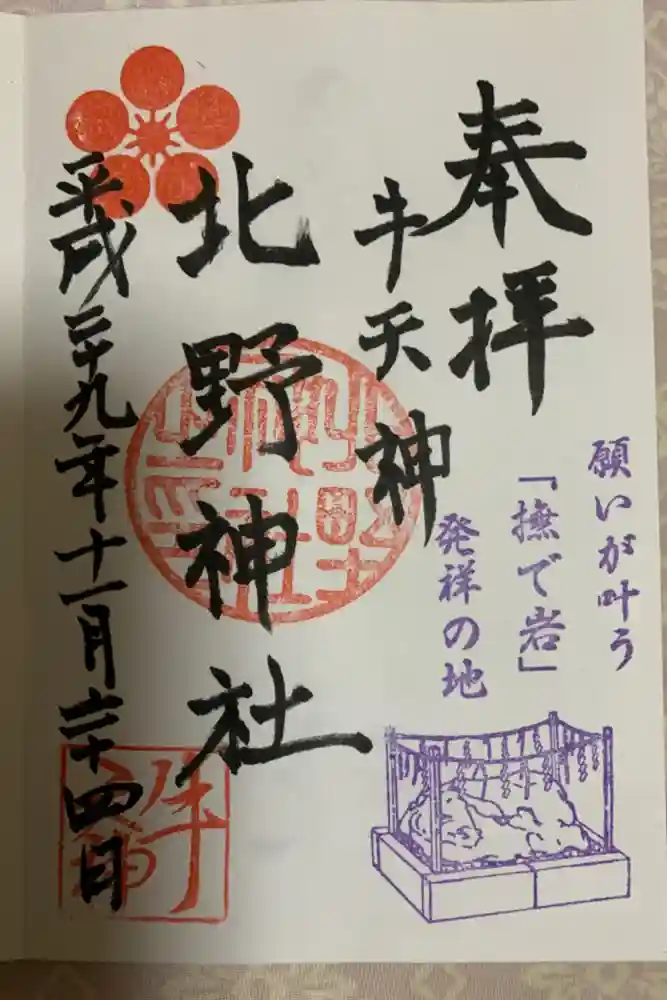 願いが叶う
「撫で岩」
発祥の地
奉拝
牛天神
北野神社
平成二十九年十一月二十四日